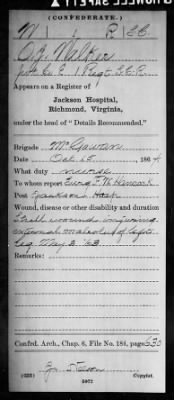 (CONFEDERATE.)
W 1 R S.C.
O. J. Walker
Pvt Co. E. 1 Regt. S.C.R.
Appears on a Register of
Jackson Hospital,
Richmond, Virginia,
under the head of "Details Recommended."
Brigade McGowan
Date Oct. 15, 1864
What duty nurse
To whom report Surg F. W. Hancock
Post Jackson Hosp
Wound, disease or other disability and duration
Shell wound injuring
external maleol of left
leg May 3 '63
Remarks:
Confed. Arch., Chap. 6, File No. 184, page 530
(635)
Copyist.